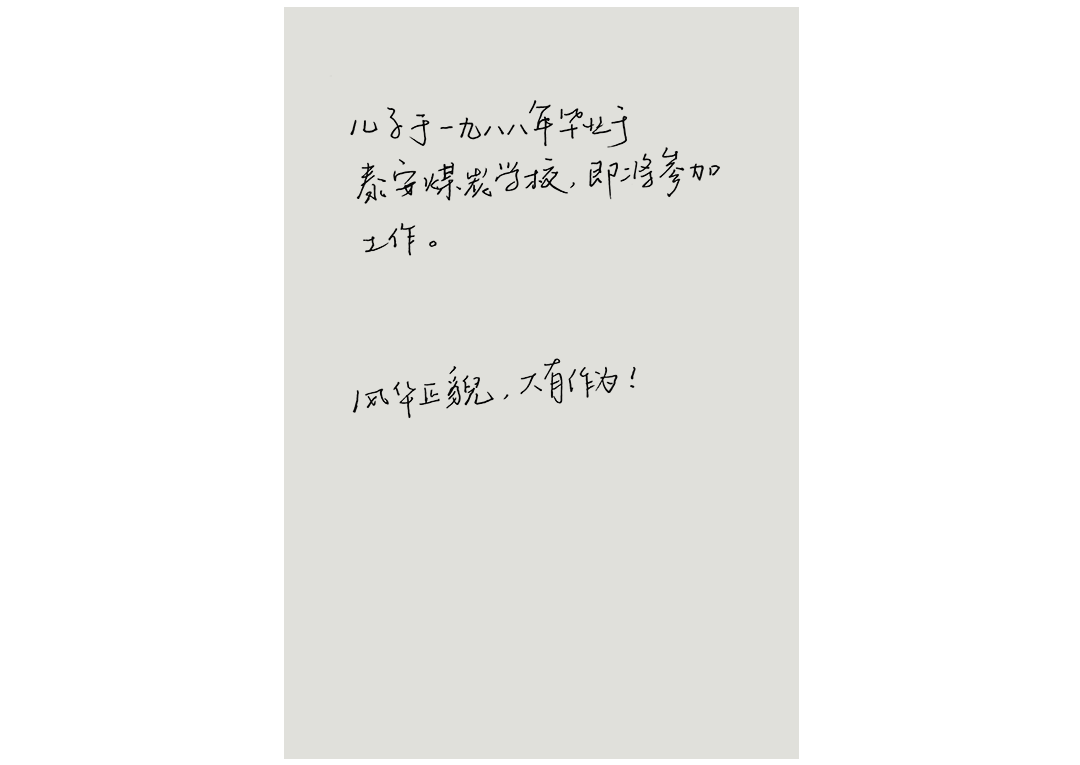 儿子于一九八八年毕业于
泰安煤炭学校,即将参加
工作。
风华正貌,大有作为!